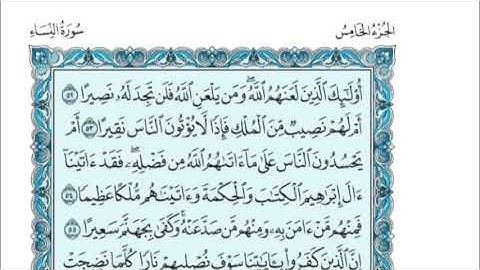 الجزء الخامس
سورة النساء
أُوْلَٰٓئِكَ ٱلَّذِينَ لَعَنَهُمُ ٱللَّهُۖ وَمَن يَلْعَنِ ٱللَّهُ فَلَن تَجِدَ لَهُۥ نَصِيرًا ٥٢
أَمْ لَهُمْ نَصِيبٌ مِّنَ ٱلْمُلْكِ فَإِذًا لَّا يُؤْتُونَ ٱلنَّاسَ نَقِيرًا ٥٣ أَمْ
يَحْسُدُونَ ٱلنَّاسَ عَلَىٰ مَآ ءَاتَىٰهُمُ ٱللَّهُ مِن فَضْلِهِۦۖ فَقَدْ ءَاتَيْنَآ
ءَالَ إِبْرَٰهِيمَ ٱلْكِتَٰبَ وَٱلْحِكْمَةَ وَءَاتَيْنَٰهُم مُّلْكًا عَظِيمًا ٥٤
فَمِنْهُم مَّنْ ءَامَنَ بِهِۦ وَمِنْهُم مَّن صَدَّ عَنْهُۚ وَكَفَىٰ بِجَهَنَّمَ سَعِيرًا ٥٥
إِنَّ ٱلَّذِينَ كَفَرُواْ بِـَٔايَٰتِنَا سَوْفَ نُصْلِيهِمْ نَارًا كُلَّمَا نَضِجَتْ